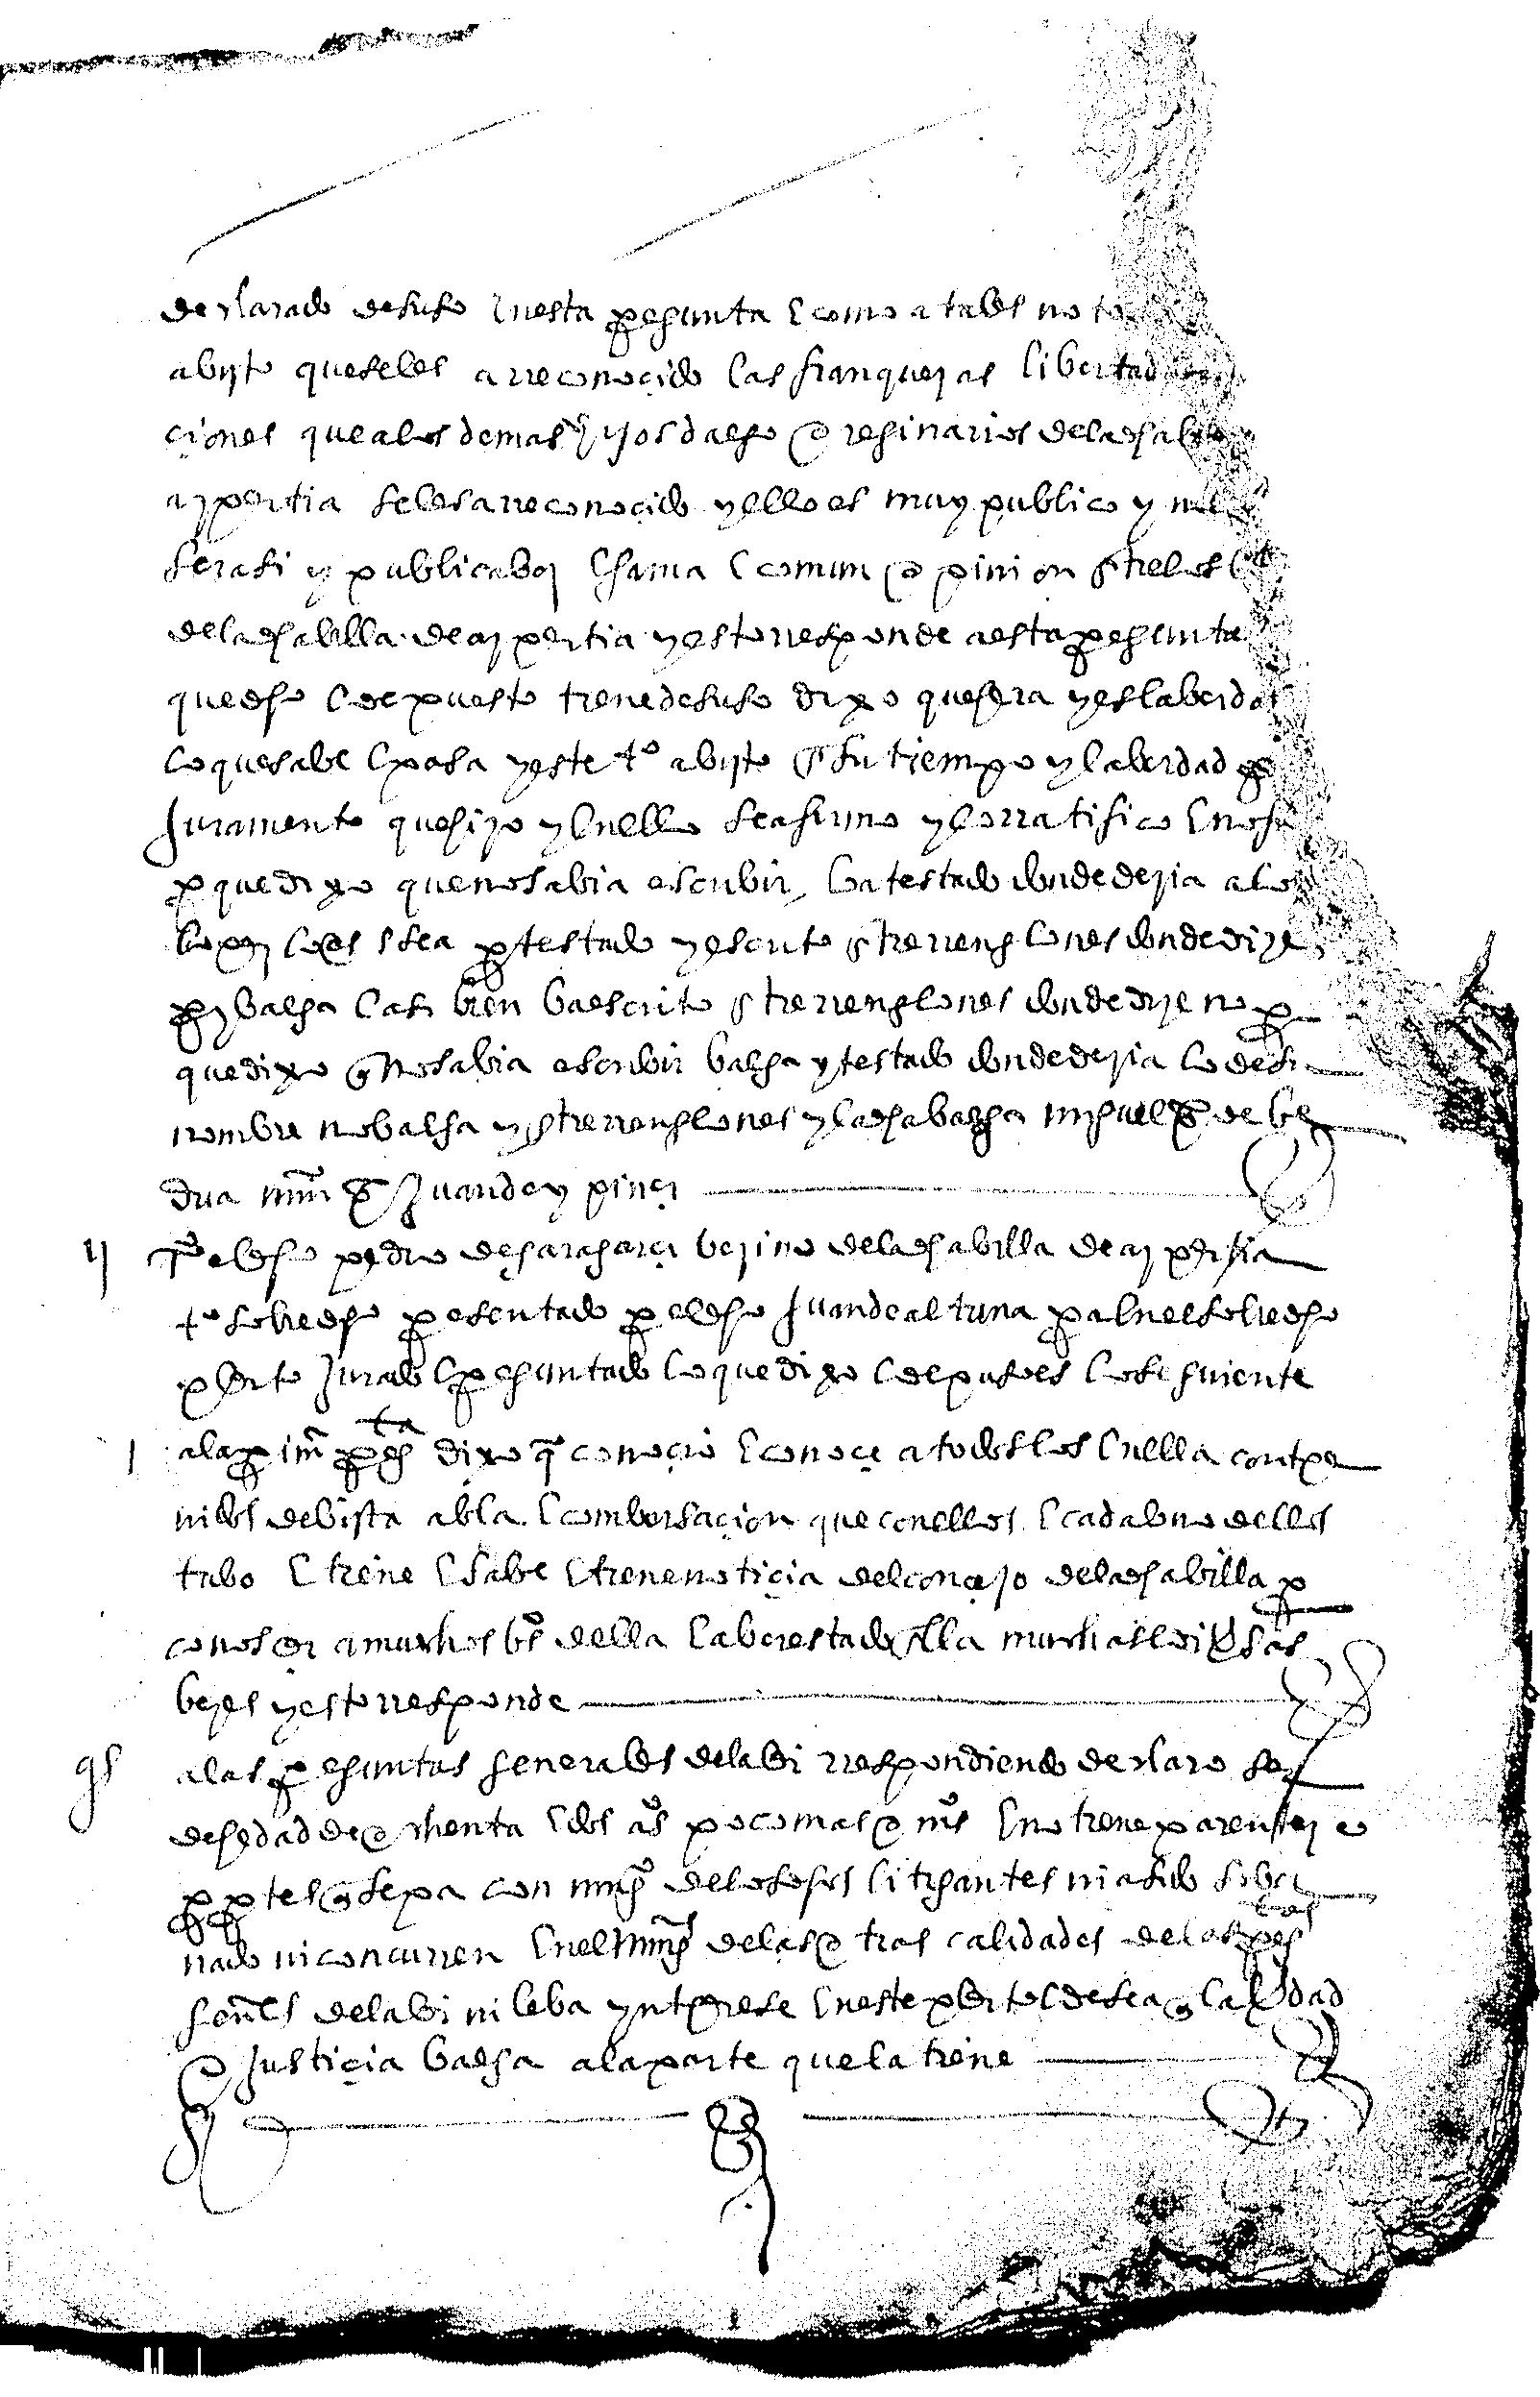 declarado desuso en esta pregunta e como a tales no to
a bisto que se les a rreconoçido las franquezas libertad
çiones que a los demas hijos dalgo originarios de la dha billa
azpeitia se les a rreconoçido y ello es muy publico y no
ser asi y publica boz e fama e comun opinion entre los
de la dha billa de azpeitia y esto rresponde a esta pregunta
que dho e depuesto tiene desuso dixo que hera y es la berdad
lo que sabe e pasa y este tº a bisto en su tiempo y la berdad
juramento que hizo y en ello se afirmo y lo rratifico e no fir
por que dixo que no sabia escribir ba testado donde dezia a lo
testado y escrito entre rrenglones donde dize
balga e asi bien ba escrito entre rrenglones donde dize no por
que dixo que no sabia escribir balga y testado donde dezia lo de su
nombre no balga y entre rrenglones y la dha balga miguel de be
dua mrn juan de ypinça
ij el dho pedro de çaragaça bezino de la dha billa de azpeitia
tº sobre dho presentado por el dho juan de altuna para en el sobre dho
pleito jurado e preguntado lo que dixo e depuso es lo seguiente
I a la prim preg ta dixo q conoçio e conoçe a todos los en ella conthe
nidos de bista abla e combersaçion que con ellos e cada uno dellos
tubo e tiene e sabe e tiene notiçia del conçejo de la dha billa por
conosçer a muchos bºs della e aber estado en ella muchas e dibersas
bezes y esto rresponde
gs a las preguntas generales de la ley rrespondiendo declaro ser
de hedad de ochenta e dos aºs poco mas o mºs e no tiene parentesco
con ningº de los dhos litigantes ni a sido sobor
nado ni concurren en el ning de las otras calidades de las preg tas
genles de la ley ni leba ynterese en este pleito e desea que la verdad
o justiçia balga a la parte que la tiene